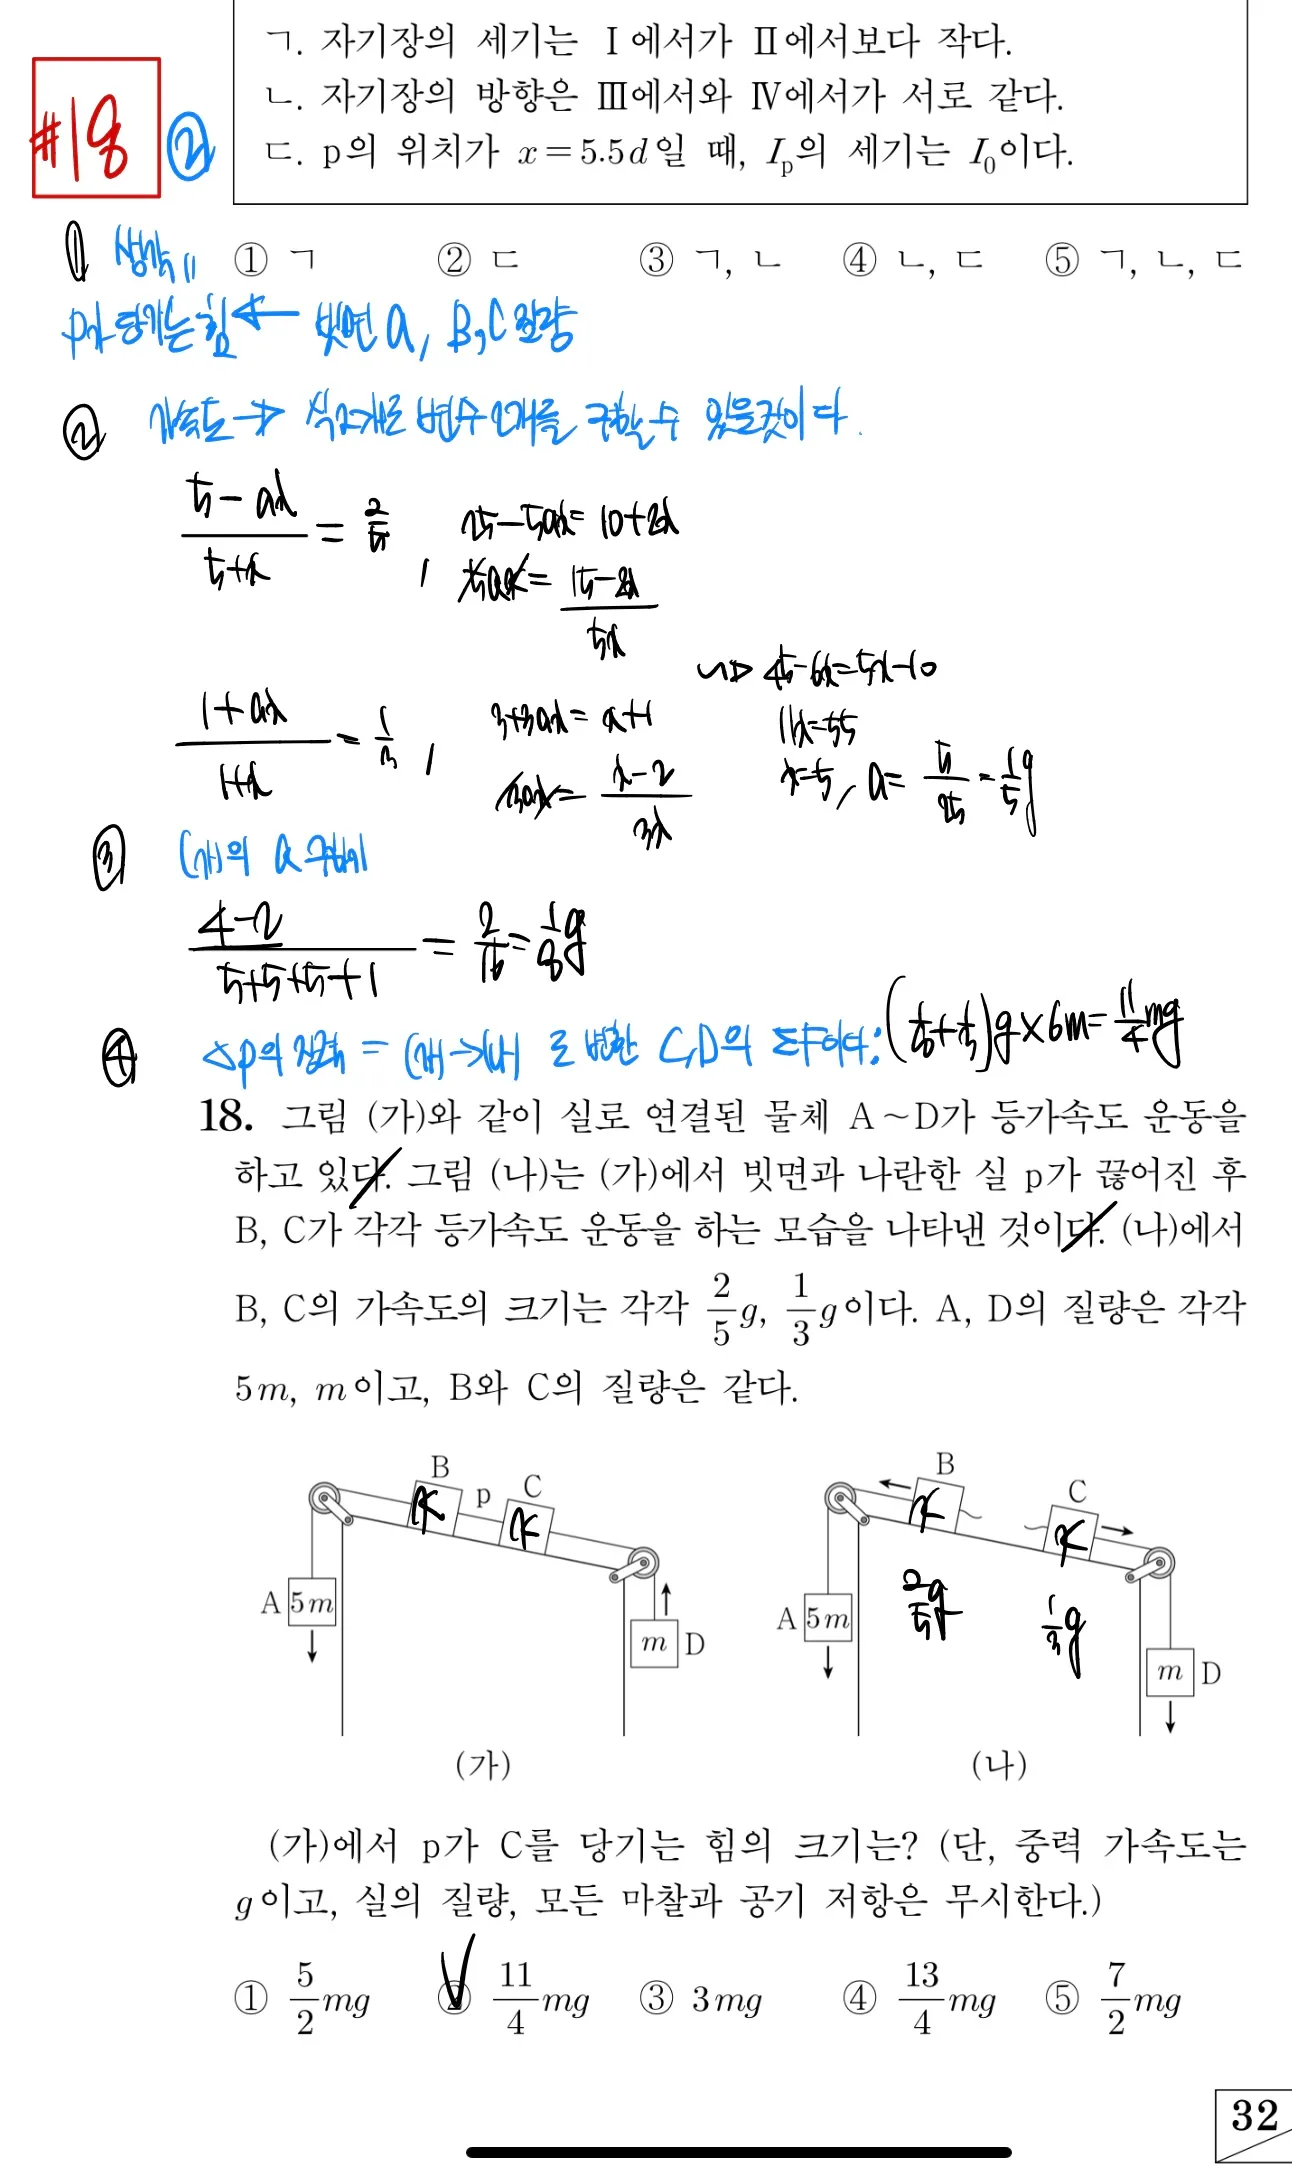 ㄱ. 자기장의 세기는 Ⅰ에서가 Ⅱ에서보다 작다.
ㄴ. 자기장의 방향은 Ⅲ에서와 Ⅳ에서가 서로 같다.
ㄷ. p의 위치가 x=5.5d일 때, Iₚ의 세기는 I₀이다.
#18 ②
① ㄱ ② ㄷ ③ ㄱ, ㄴ ④ ㄴ, ㄷ ⑤ ㄱ, ㄴ, ㄷ
① 생각
p가 당기는 힘 ← 빗면 a, B,C 질량
② 가속도 → 식2개로 변수 2개를 구할 수 있을것이다.
(5-ax)/(5+x) = 2/5, 25-5ax=10+2x
5ax = (15-2x)/5x
(1+ax)/(1+x) = 1/3, 3+3ax = x+1
3ax = (x-2)/3x
→ 45-6x=5x-10
11x=55
x=5, a= 5/25 = 1/5 g
③ (가)의 a 구하기
(4-2)/(5+5+5+1) = 2/16 = 1/8 g
④ △p의 장력 = (가)→(나)로 변한 C,D의 ΣF이다: (1/8+1/3)g×6m = 11/4 mg
18. 그림 (가)와 같이 실로 연결된 물체 A~D가 등가속도 운동을
하고 있다. 그림 (나)는 (가)에서 빗면과 나란한 실 p가 끊어진 후
B, C가 각각 등가속도 운동을 하는 모습을 나타낸 것이다. (나)에서
B, C의 가속도의 크기는 각각 2/5 g, 1/3 g이다. A, D의 질량은 각각
5m, m이고, B와 C의 질량은 같다.
B x p C x
A 5m
m D
(가)
B x C x
2/5 g 1/3 g
A 5m
m D
(나)
(가)에서 p가 C를 당기는 힘의 크기는? (단, 중력 가속도는
g이고, 실의 질량, 모든 마찰과 공기 저항은 무시한다.)
① 5/2 mg ② 11/4 mg ③ 3mg ④ 13/4 mg ⑤ 7/2 mg
32